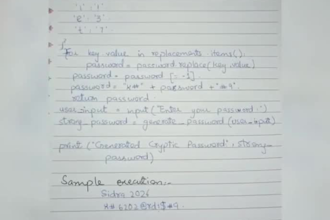 'i' : '!'
'e' : '3'
't' : '7'
}
For key value in replacements items().
password = password replace (key value)
password = password [: -1]
password = "x#" + password + "&9"
return password
user_input = input ("Enter your password :")
strong_password = generate_password (user_input)
print ("Generated Cryptic Password": strong_
password)
Sample execution:-
2026